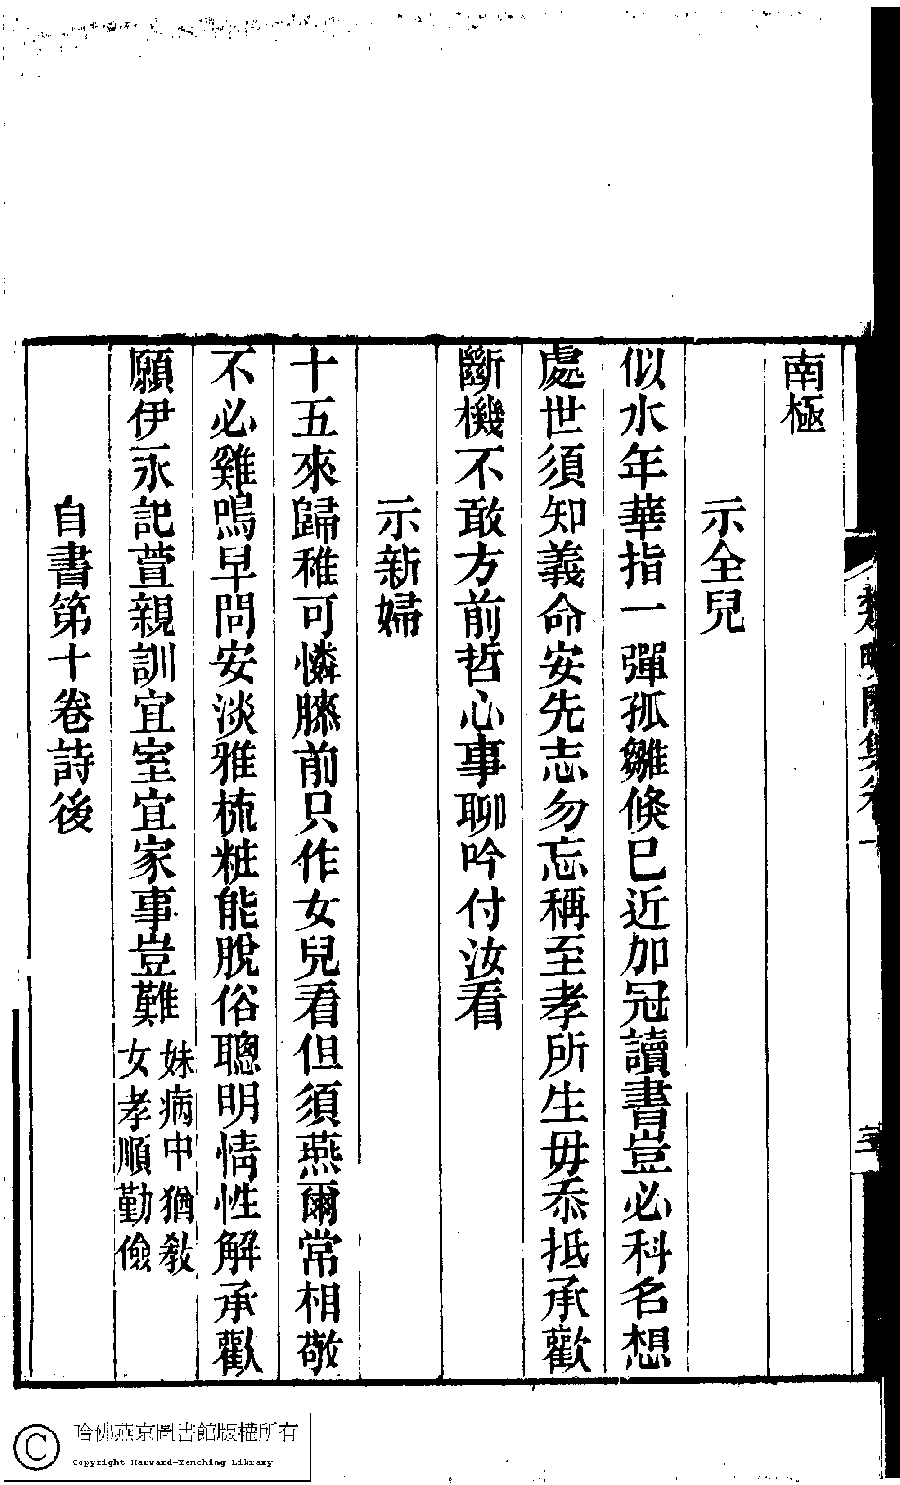 南極
示全兒
似水年華指一彈孤雛倏巳近加冠讀書豈必科名想
處世須知義命安先志勿忘稱至孝所生毋忝抵承歡
斷機不敢方前哲心事聊吟付汝看
示新婦
十五來歸稚可憐膝前只作女兒看但須燕爾常相敬
不必雞鳴早問安淡雅梳粧能脫俗聰明情性解承歡
願伊永記萱親訓宜室宜家事豈難
妹病中猶敎
女孝順勤儉
自書第十卷詩後
哈佛燕京圖書館版權所有
Copyright Harvard-Yenching Library